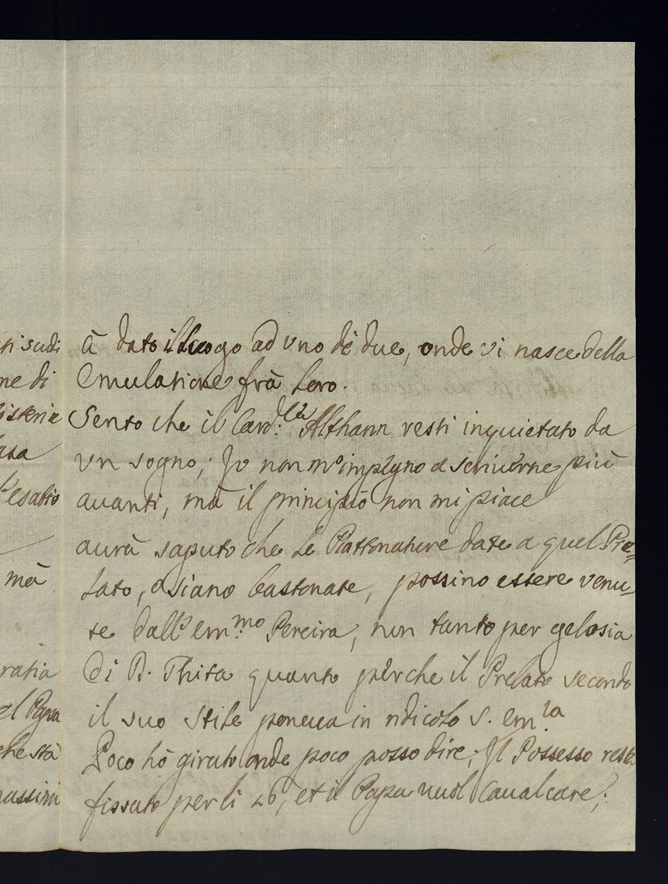 à dato il luogo ad vno de due, onde vi nasce della
Emulatione frà loro.
Sento che il Card.le Althann resti inquietato da
vn sogno; Jo non m'impegno a scriuerne più
auanti, mà il principio non mi piace
aurà saputo che le Piattonature date a quel Pre=
lato, ò siano bastonate, possino essere venu=
te dall' em.mo Pereira, non tanto per gelosia
di D. Thita quanto perche il Prelato secondo
il suo stile poneua in ridicolo s. em.za
Poco hò girato onde poco posso dire; Jl Possesso resta
fissato per li 26, et il Papa uuol Caualcare;
ne di
mà
el Papa
che stà